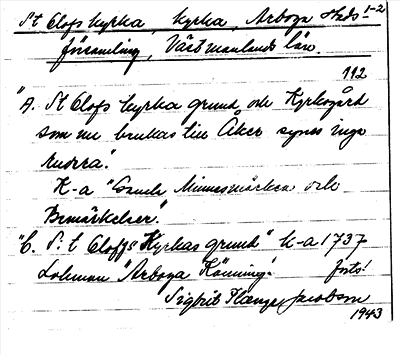 St Olofs kyrka, kyrka, Arboga Stads- 1-2
församling, Västmanlands län.
112
"A. St Olofs kyrka grund och Kyrkogård
som nu brukas till Åker synes inga
rudera".
K-a "Gamla Minnesmärken och
Bemärkelser".
"C. S:t Oloffs Kyrkas grund" k-a 1737
Lohman "Arboga Känning". forts!
Sigbrit Plænge Jacobson
1943